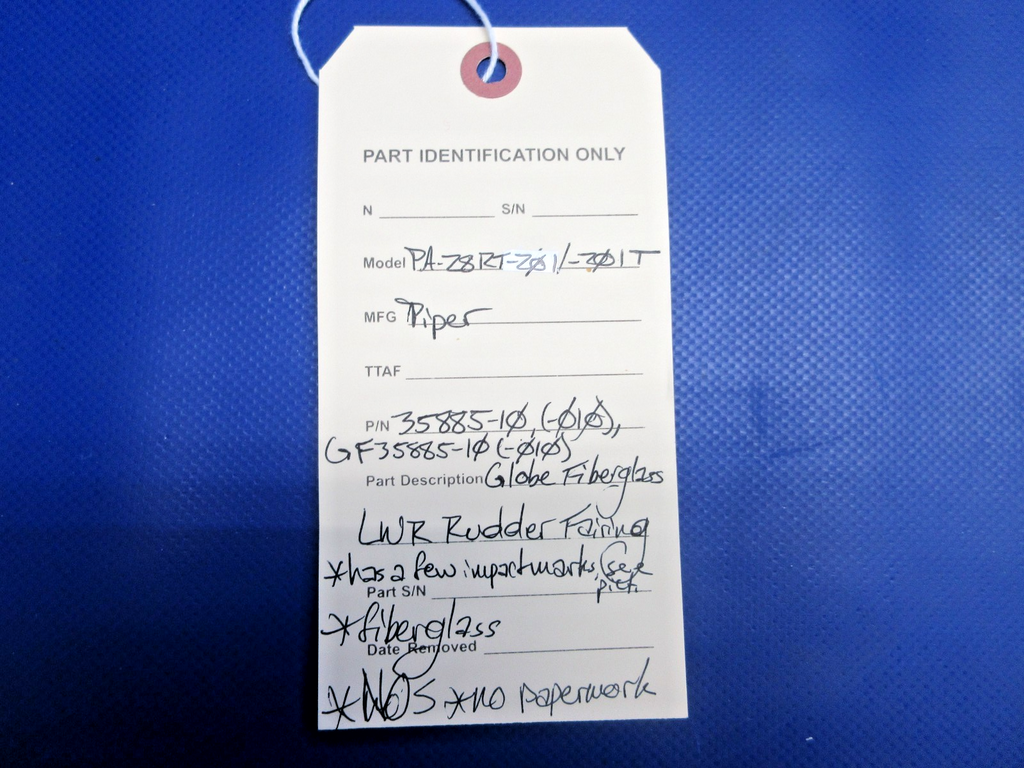 PART IDENTIFICATION ONLY
N S/N
Model PA-28RT-201/-201T
MFG Piper
TTAF
P/N 35885-10, (-010),
GF35885-10 (-010)
Part Description Globe Fiberglass
LWR Rudder Fairing
*has a few impact marks, (see
Part S/N pict.
*fiberglass
Date Removed
*NOS *no paperwork